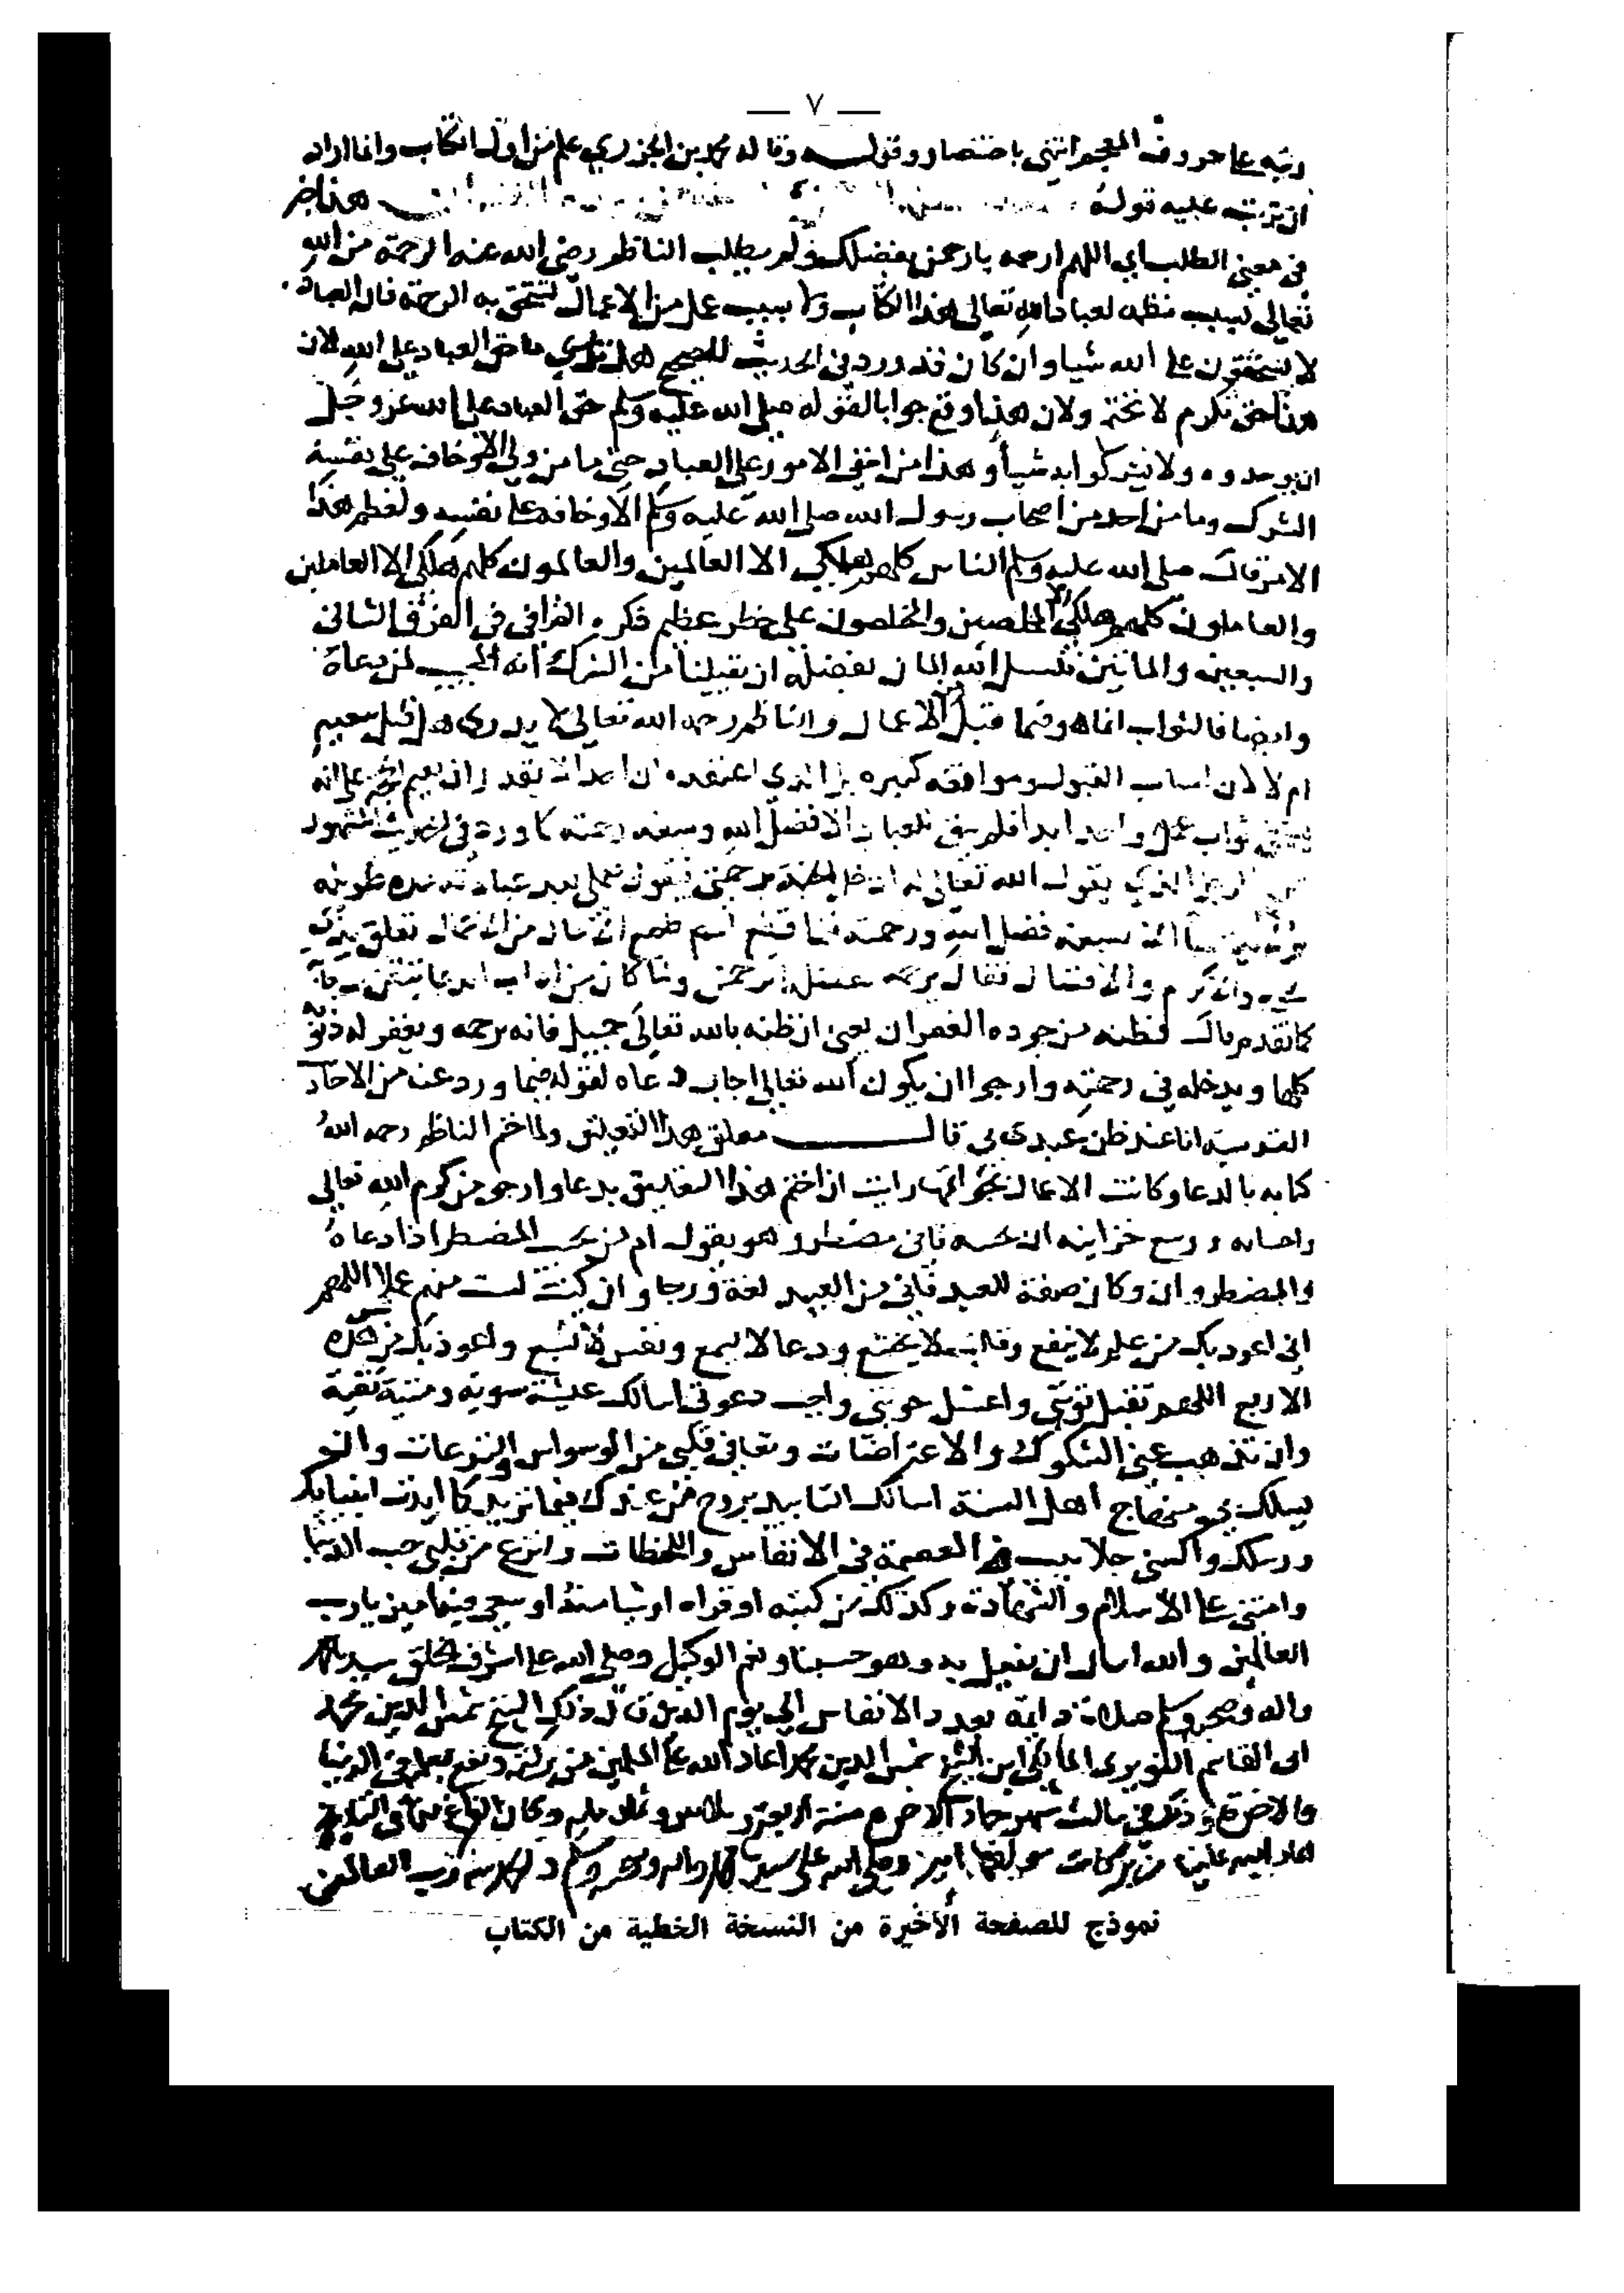 — ٧ —
رتبه على حروف المعجم انتهى باختصار وقوله وقاله محمد بن الجزري علم من اول الكتاب وانما اراد
ان يرتب عليه قوله هذا خبر
في معنى الطلب اي اللهم ارحمه يا رحمن بفضلك ولم يطلب الناظم رضي الله عنه الرحمة من الله
تعالى بسبب نظمه لعباد الله تعالى هذا الكتاب ولا بسبب عمل من الاعمال تستحق به الرحمة فان العباد
لا يستحقون على الله شيا وان كان قد ورد في الحديث الصحيح هل تدري ما حق العباد على الله لان
هذا حق تكرم لا تحتم ولان هذا وقع جوابا لقوله صلى الله عليه وسلم حق العباد على الله عز وجل
ان يوحدوه ولا يشركوا به شيأ وهذا من اخفى الامور على العباد حتى ما من ولي الا وخافه على نفسه
الشرك وما من احد من اصحاب رسول الله صلى الله عليه وسلم الا وخافه على نفسه ولعظم هذا
الامر قال صلى الله عليه وسلم الناس كلهم هلكى الا العالمين والعالمون كلهم هلكى الا العاملين
والعاملون كلهم هلكى الا المخلصين والمخلصون على خطر عظيم ذكره القرافي في الفرق الثاني
والسبعين والماتين نسل الله المان بفضله ان يقيلنا من الشرك انه المجيب لمن دعاه
وايضا فالثواب انما هو فيما قبل من الاعمال والناظم رحمه الله تعالى لا يدري هل قبل سعيه
ام لا لان اسباب القبول وموافقه كبيره
ثواب عمل واحد ابدا فلم يبق للعباد الا فضل الله وسعة رحمته كما ورد في الحديث المشهور
الذي يقول الله تعالى له ادخل الجنة برحمتي فيقول بعملي بعد عبادته مدة طويلة
بسعة فضل الله ورحمته
وما كان من اداب الدعا
كما تقدم قال فظنه من جوده الغفران يعني ان ظنه بالله تعالى جميل فانه يرحمه ويغفر له ذنوبه
كلها ويدخله في رحمته وارجوا ان يكون الله تعالى اجاب دعاه لقوله فيما ورد عنه من الاحاد
القدسية انا عند ظن عبدي بي قال معلق هذا التعليق ولما ختم الناظم رحمه الله
كتابه بالدعا وكانت الاعمال بخواتمها رايت ان اختم هذا التعليق بدعا وارجو من كرم الله تعالى
واحسانه ووسع خزاينه ان يجيبه فاني مضطر وهو يقول ام من يجيب المضطر اذا دعاه
والمضطر وان وكان صفة للعبد فاني من العبيد لغة ورجا وان كنت لست منهم عملا اللهم
اني اعوذ بك من علم لا ينفع وقلب لا يخشع ودعا لا يسمع ونفس لا تشبع واعوذ بك من هذه
الاربع اللهم تقبل توبتي واغسل حوبتي واجب دعوتي اسالك عيشة سوية وميتة نقية
وان تذهب عني الشكوك والاعتراضات وتعافي قلبي من الوسواس والنزعات وان
يسلك بي منهاج اهل السنة اسالك التاييد بروح من عندك فيما تريد كما ايدت انبيايك
ورسلك واكسني جلابيب العصمة في الانفاس واللحظات وانزع من قلبي حب الدنيا
وامتني على الاسلام والشهادة وكذلك من كتبه او قراه او شيا منه او سعى فيه امين يا رب
العالمين والله اسال ان ينفع به وهو حسبنا ونعم الوكيل وصلى الله على اشرف الخلق سيدنا محمد
واله وصحبه وسلم صلاة دايمة بعدد الانفاس الى يوم الدين قال ذلك الشيخ شمس الدين محمد
ابي القاسم النويري المالكي ابن الشيخ شمس الدين محمد اعاد الله على المسلمين من بركته ونفع بعلمه في الدنيا
والاخرة وذلك في ثالث شهر جماد الاخر سنة اربعة وثلاثين وثمان مايه وكان الفراغ
اعاد الله علينا من بركات مولفها امين وصلى الله على سيدنا محمد واله وصحبه وسلم والحمد لله رب العالمين
نموذج للصفحة الأخيرة من النسخة الخطية من الكتاب